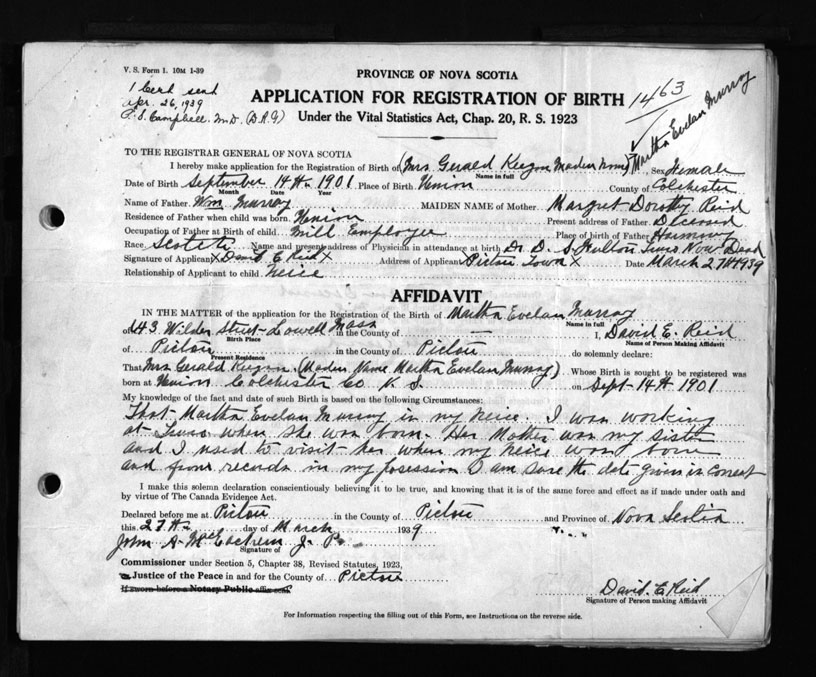 V. S. Form 1. 10M 1-39
1 Cert send
Apr. 26, 1939
P. S. Campbell. M.D. (D.R.G)
PROVINCE OF NOVA SCOTIA
APPLICATION FOR REGISTRATION OF BIRTH
Under the Vital Statistics Act, Chap. 20, R. S. 1923
1463
Martha Evelan Murray
TO THE REGISTRAR GENERAL OF NOVA SCOTIA
I hereby make application for the Registration of Birth of (Mrs. Gerald Keegon Maden Name) Sex Female
Name in full
Date of Birth September 14th 1901 Place of Birth Union County of Colchester
Month Date Year
Name of Father Wm Murray MAIDEN NAME of Mother Margret Dorothy Reid
Residence of Father when child was born. Union Present address of Father Deceased
Occupation of Father at Birth of Child Mill Employee Place of birth of Father Harmony
Race Scotch Name and present address of Physician in attendance at birth Dr. D. S. Fulton Truro Now Dead
Signature of Applicant X David E Reid X Address of Applicant Pictou Town X Date March 27th 1939
Relationship of Applicant to child Neice
AFFIDAVIT
IN THE MATTER of the application for Registration of the Birth of Martha Evelan Murray
Name in full
of 43 Wilder Street Lowell Mass in the County of — I, David E. Reid
Birth Place Name of Person Making Affidavit
of Pictou in the County of Pictou do solemnly declare:
Present Residence
That Mrs Gerald Keegon (Maden Name Martha Evelan Murray) Whose Birth is sought to be registered was
born at Union Colchester Co N. S. on Sept 14th 1901
My knowledge of the fact and date of such Birth is based on the following Circumstances:
That Martha Evelan Murray is my neice. I was working
at Truro when she was born. Her Mother was my sister
and I used to visit her when my neice was born
and from records in my posession I am sure the date given is correct
I make this solemn declaration conscientiously believing it to be true, and knowing that it is of the same force and effect as if made under oath and
by virtue of The Canada Evidence Act.
Declared before me at Pictou in the County of Pictou and Province of Nova Scotia
this 27th day of March 1939
John A. MacEachern J. P.
Signature of
Commissioner under Section 5, Chapter 38, Revised Statutes, 1923,
or Justice of the Peace in and for the County of Pictou
If sworn before a Notary Public affix seal.
David. E. Reid
Signature of Person making Affidavit
For Information respecting the filling out of this Form, see Instructions on the reverse side.